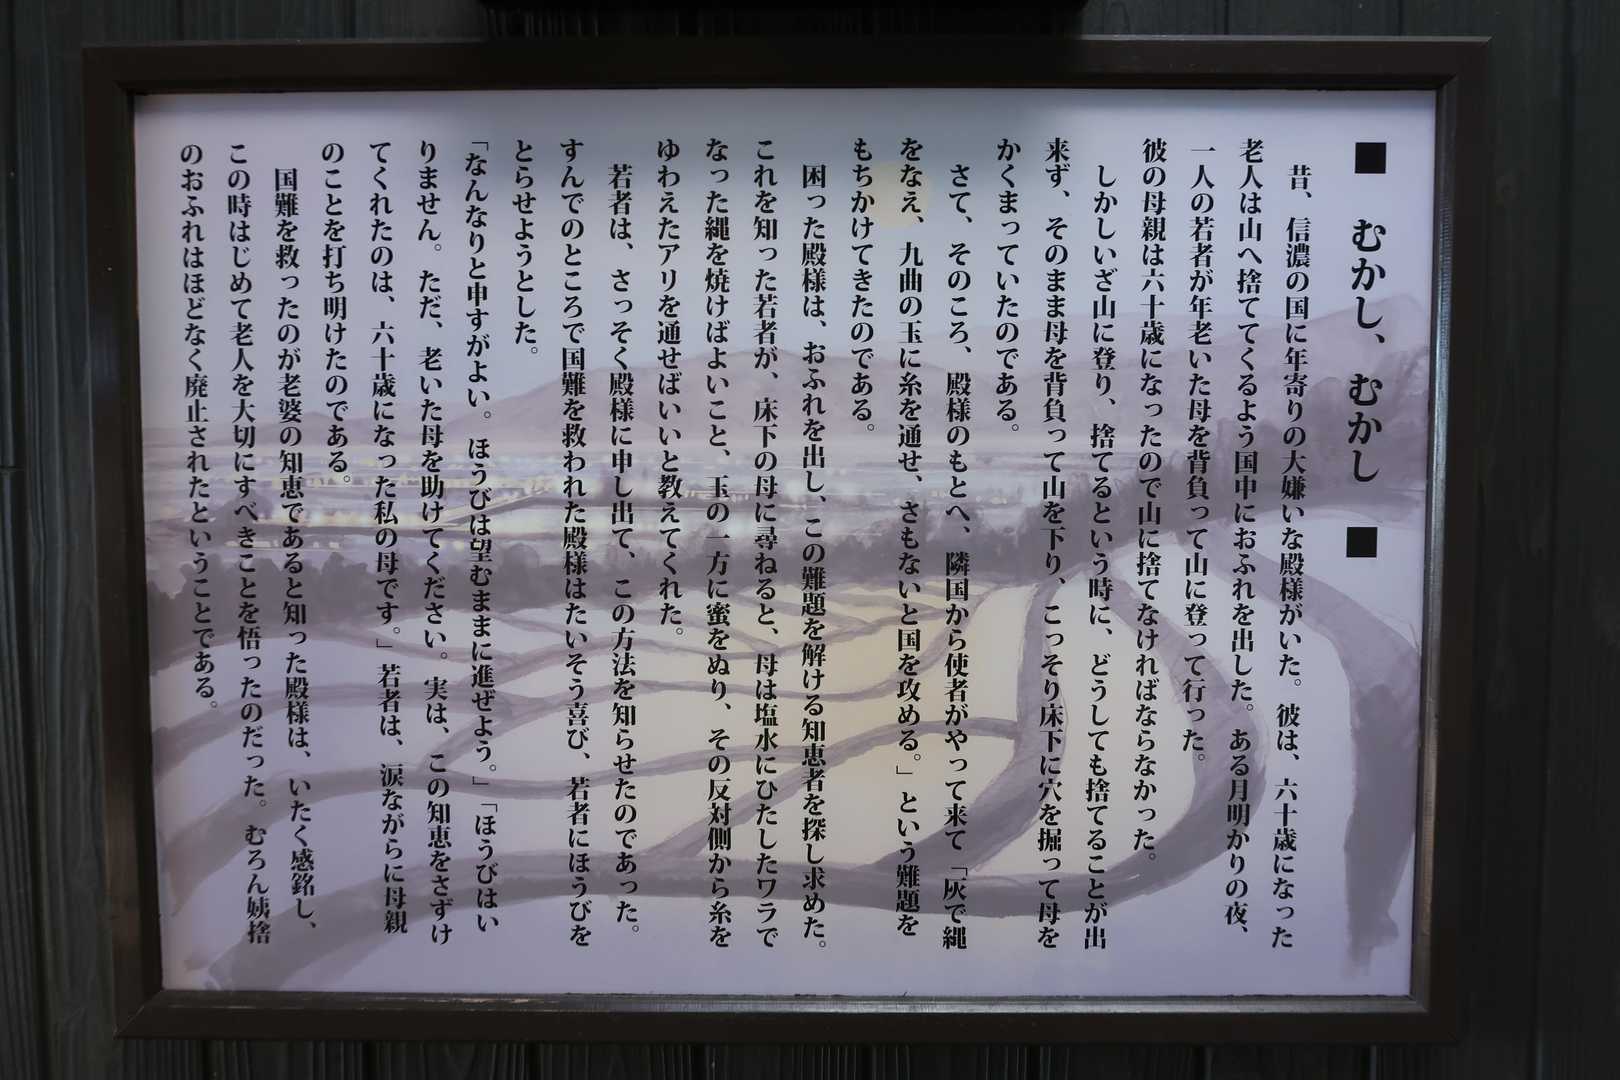 ■ むかし、むかし ■
昔、信濃の国に年寄りの大嫌いな殿様がいた。彼は、六十歳になった
老人は山へ捨ててくるよう国中におふれを出した。ある月明かりの夜、
一人の若者が年老いた母を背負って山に登って行った。
彼の母親は六十歳になったので山に捨てなければならなかった。
しかしいざ山に登り、捨てるという時に、どうしても捨てることが出
来ず、そのまま母を背負って山を下り、こっそり床下に穴を掘って母を
かくまっていたのである。
さて、そのころ、殿様のもとへ、隣国から使者がやって来て「灰で縄
をなえ、九曲の玉に糸を通せ、さもないと国を攻める。」という難題を
もちかけてきたのである。
困った殿様は、おふれを出し、この難題を解ける知恵者を探し求めた。
これを知った若者が、床下の母に尋ねると、母は塩水にひたしたワラで
なった縄を焼けばよいこと、玉の一方に蜜をぬり、その反対側から糸を
ゆわえたアリを通せばいいと教えてくれた。
若者は、さっそく殿様に申し出て、この方法を知らせたのであった。
すんでのところで国難を救われた殿様はたいそう喜び、若者にほうびを
とらせようとした。
「なんなりと申すがよい。ほうびは望むままに進ぜよう。」「ほうびはい
りません。ただ、老いた母を助けてください。実は、この知恵をさずけ
てくれたのは、六十歳になった私の母です。」若者は、涙ながらに母親
のことを打ち明けたのである。
国難を救ったのが老婆の知恵であると知った殿様は、いたく感銘し、
この時はじめて老人を大切にすべきことを悟ったのだった。むろん姨捨
のおふれはほどなく廃止されたということである。